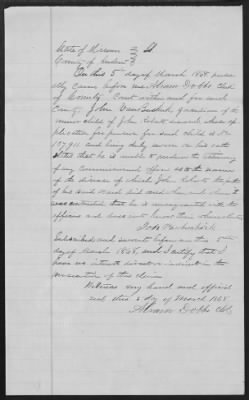 State of Missouri } ss
County of
On this 5" day of March 1868 personally
came before me Abram Dobbs Clerk
of County Court within and for said
County John Vanbuskirk Guardian of the
minor child of John Roberts deceased whose application
for pension for said child is No
107,911 and being duly sworn on his oath
states that he is unable to
any Commissioned officer as to the manner
of the disease of which John Roberts the father
of his said Ward died and
was contracted that he is unacquainted with the
officers and does not know their whereabouts
John Vanbuskirk
Subscribed and sworn to before me this 5th
day of March 1868, and I certify that I
have no interest direct or indirect in the
prosecution of this claim
Witness my hand and official
seal this 5 day of March 1868
Abram Dobbs Clk